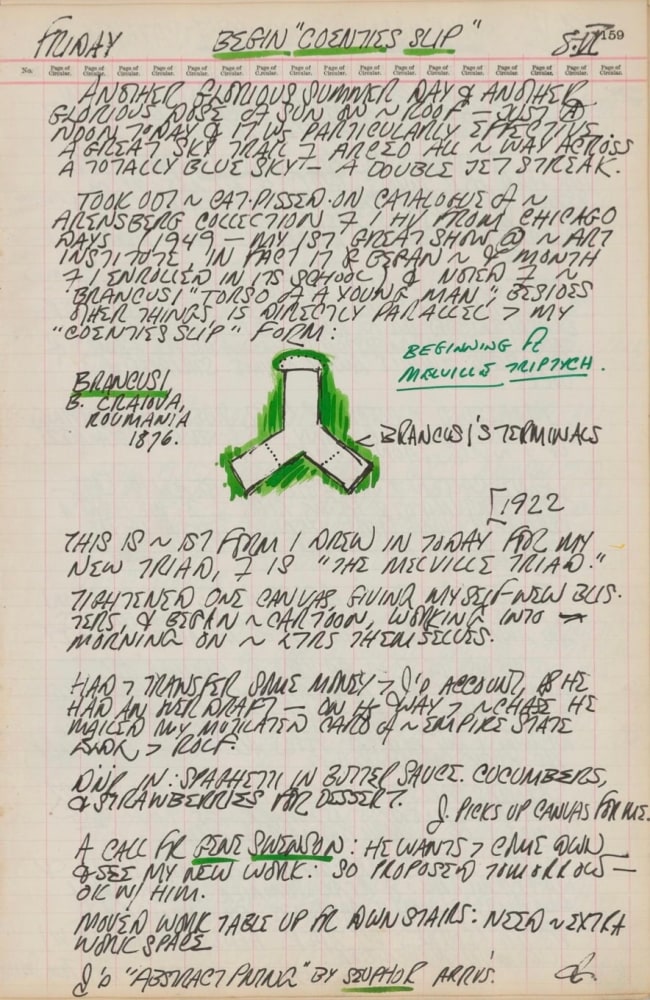 FRIDAY BEGIN "COENTIES SLIP" 8·VI 159
No. Page of Circular. Page of Circular. Page of Circular. Page of Circular. Page of Circular. Page of Circular. Page of Circular. Page of Circular. Page of Circular. Page of Circular. Page of Circular. Page of Circular. Page of Circular. Page of Circular. Page of Circular. Page of Circular. Page of Circular. Page of Circular.
ANOTHER GLORIOUS SUMMER DAY & ANOTHER
GLORIOUS DOSE OF SUN ON ~ ROOF — JUST @
NOON TODAY & IT WS PARTICULARLY EFFECTIVE.
A GREAT SKY TRAIL 7 ARCED ALL ~ WAY ACROSS
A TOTALLY BLUE SKY — A DOUBLE JET STREAK.
TOOK OUT ~ CAT-PISSED-ON CATALOGUE OF ~
ARENSBERG COLLECTION 7 I HV FROM CHICAGO
DAYS (1949 — MY 1ST GREAT SHOW @ ~ ART
INSTITUTE, IN FACT IT & BEGAN ~ MONTH
7 I ENROLLED IN ITS SCHOOL) & NOTED 7 ~
BRANCUSI "TORSO OF A YOUNG MAN", BESIDES
OTHER THINGS, IS DIRECTLY PARALLEL > MY
"COENTIES SLIP" FORM:
BEGINNING OF
MELVILLE TRIPTYCH.
BRANCUSI,
B. CRAIOVA,
ROUMANIA
1876.
< BRANCUSI'S TERMINALS
[1922
THIS IS ~ 1ST FORM I DREW IN TODAY FOR MY
NEW TRIAD, 7 IS "THE MELVILLE TRIAD."
TIGHTENED ONE CANVAS, GIVING MYSELF NEW BLIS-
TERS, & BEGAN ~ CARTOON, WORKING INTO ~
MORNING ON ~ LTRS THEMSELVES.
HAD > TRANSFER SOME MONEY > J'S ACCOUNT, AS HE
HAD AN OVERDRAFT — ON HS WAY > ~ CHASE HE
MAILED MY MUTILATED CARD OF ~ EMPIRE STATE
BLDR > ROLF.
DINR IN: SPAGHETTI IN BUTTER SAUCE. CUCUMBERS,
& STRAWBERRIES FOR DESSERT.
J. PICKS UP CANVAS FOR ME.
A CALL FR GENE SWENSON: HE WANTS > COME DOWN
& SEE MY NEW WORK: SO PROPOSED TOMORROW —
OK W/ HIM.
MOVED WORK TABLE UP FR DOWNSTAIRS: NEED ~ EXTRA
WORK SPACE.
J'S "ABSTRACT PNTNG" BY SEUPHOR ARRVS.